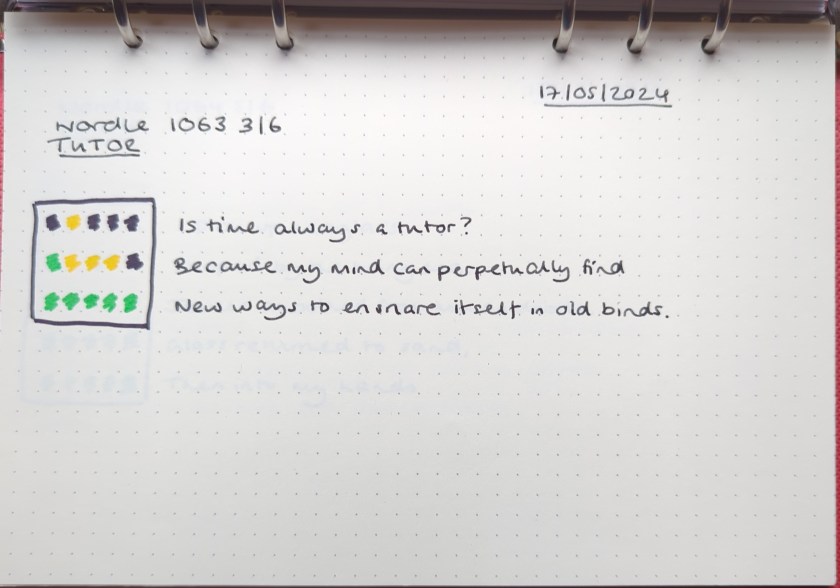 17/05/2024
Wordle 1063 3/6
TUTOR
Is time always a tutor?
Because my mind can perpetually find
New ways to ensnare itself in old binds.